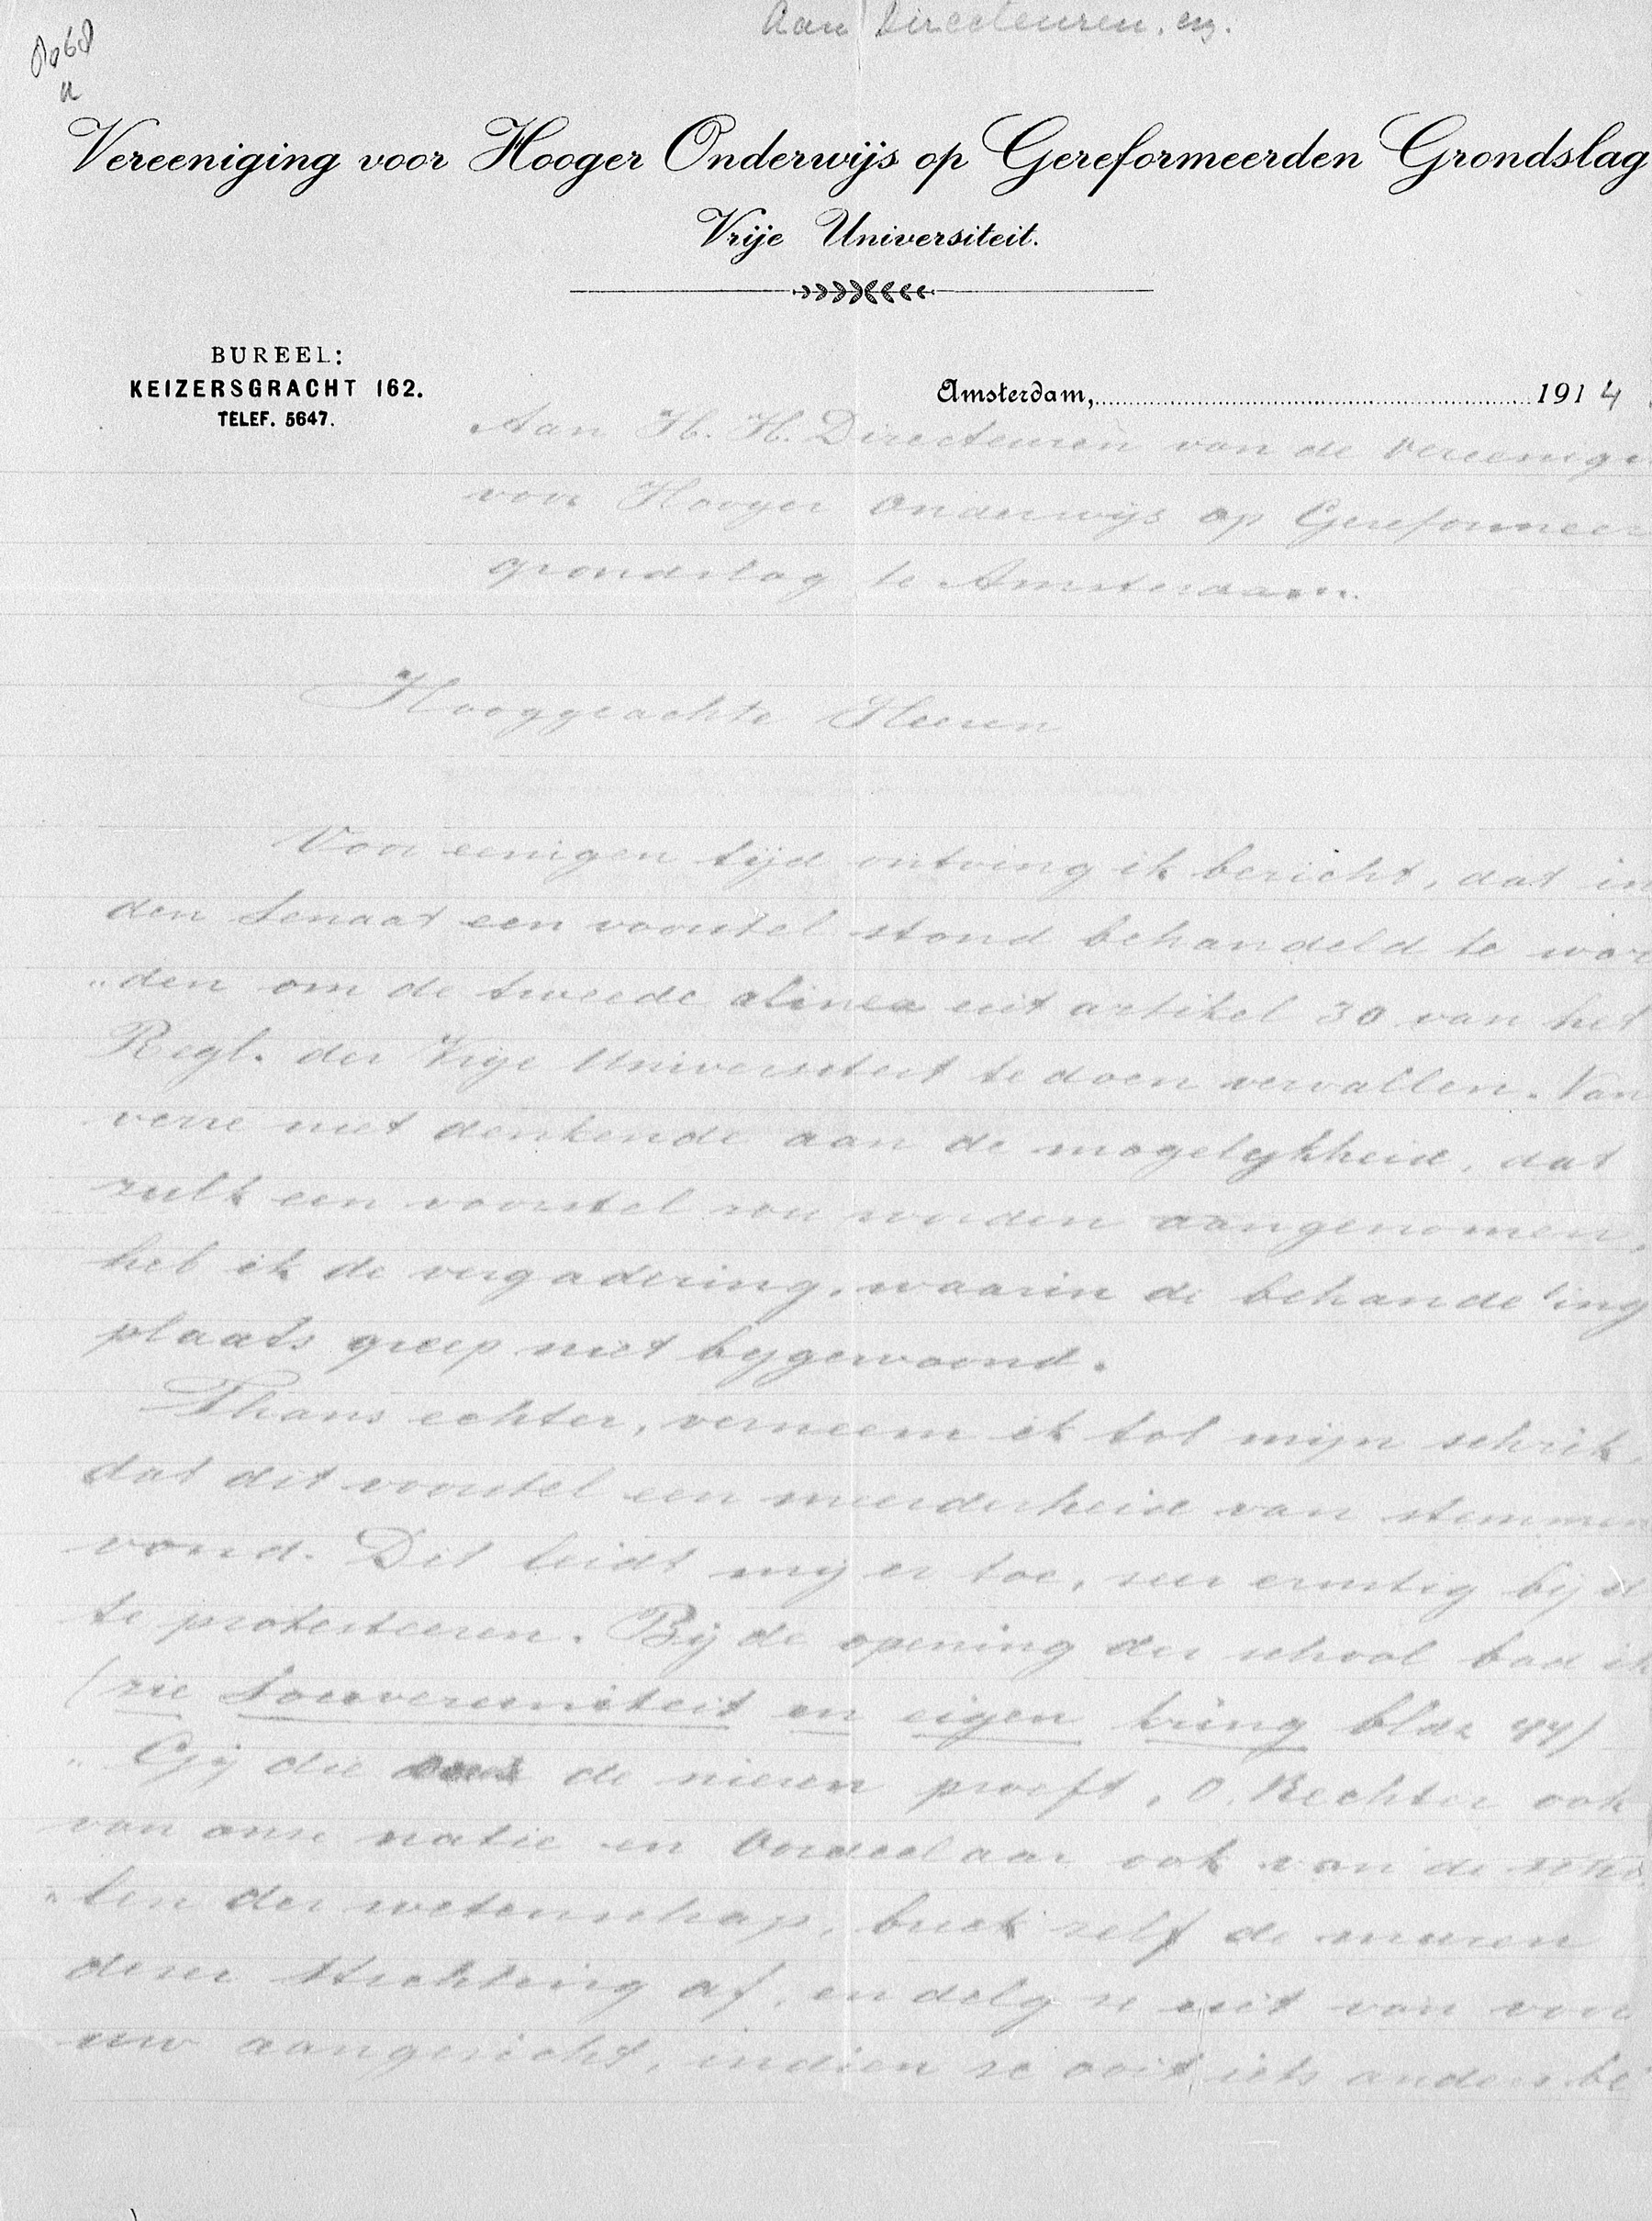 Aan Directeuren, enz.
Vereeniging voor Hooger Onderwijs op Gereformeerden Grondslag
Vrije Universiteit.
BUREEL:
KEIZERSGRACHT 162.
TELEF. 5647.
Amsterdam, 1914
Aan H. H. Directeuren van de Vereenigi
voor Hooger Onderwijs op Gereformeer
grondslag te Amsterdam.
Hooggeachte Heeren
Voor eenigen tijd ontving ik bericht, dat in
den Senaat een voorstel stond behandeld te wor
„den om de tweede alinea uit artikel 30 van het
Regl. der Vrije Universiteit te doen vervallen. Van
verre niet denkende aan de mogelykheid, dat
zulk een voorstel zou worden aangenomen,
heb ik de vergadering, waarin de behandeling
plaats greep niet bygewoond.
Thans echter, verneem ik tot mijn schrik,
dat dit voorstel een meerderheid van stemmen
vond. Dit leidt mij er toe, zeer ernstig bij U
te protesteeren. Bij de opening der school bad ik
(zie Souvereiniteit en eigen kring bldz 44)
„Gij die de nieren proeft, O, Rechter ook
van onze natie en Oordeelaar ook van de scho
„len der wetenschap, breek zelf de muren
dezer stichting af, en delg ze uit van voor
uw aangezicht, indien ze ooit iets anders be